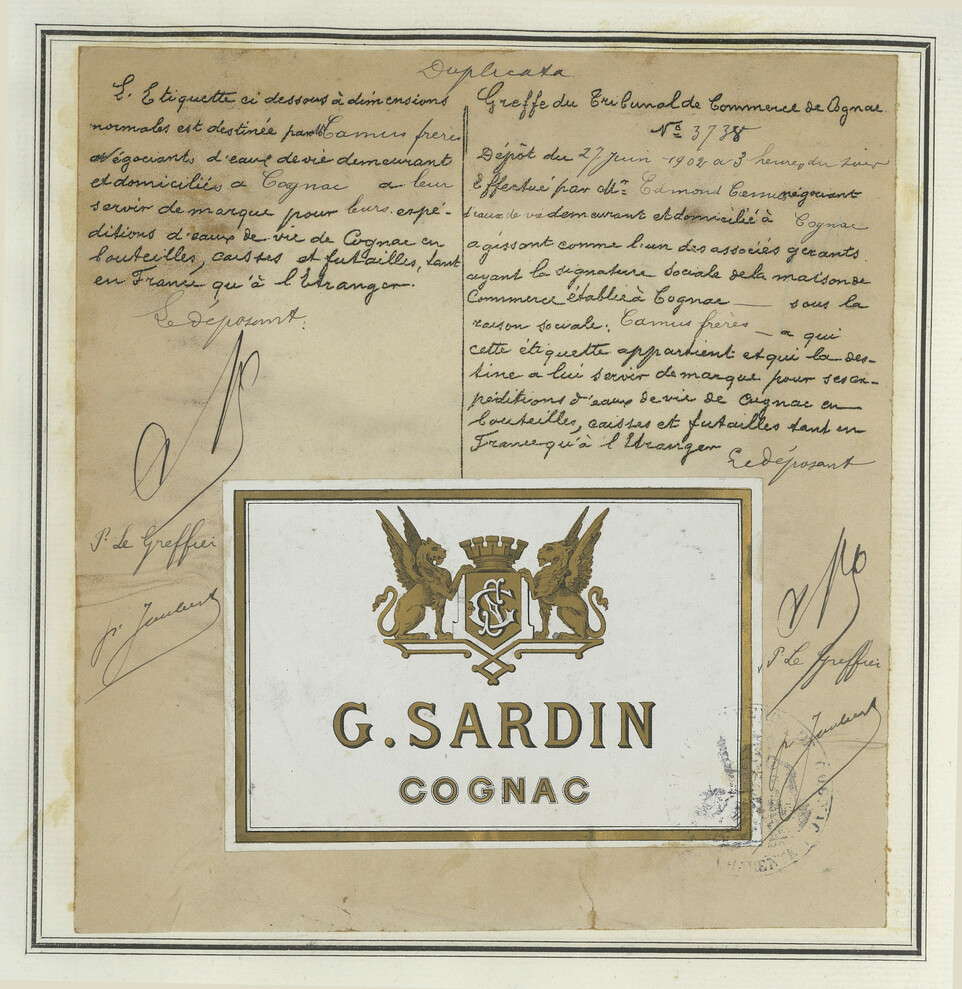 Duplicata
L'Etiquette ci dessous à dimensions
normales est destinée par Camus frères
négociants d'eaux de vie demeurant
et domiciliés a Cognac a leur
servir de marque pour leurs expé-
ditions d'eaux de vie de Cognac en
bouteilles, caisses et futailles, tant
en France qu'à l'Etranger.
Le déposant.
Pr Le Greffier
pr Jaubert
Greffe du Tribunal de Commerce de Cognac
No 3738
Dépôt du 27 juin 1902 a 3 heures du soir
Effectué par Mr Edmond Camus négociant
d'eaux de vie demeurant et domicilié à Cognac
agissant comme l'un des associés gérants
ayant la signature sociale de la maison de
Commerce établie à Cognac — sous la
raison sociale: Camus frères — a qui
cette étiquette appartient et qui la des-
tine a lui servir de marque pour ses ex-
péditions d'eaux de vie de Cognac en
bouteilles, caisses et futailles tant en
France qu'à l'Etranger
Le déposant
Pr Le Greffier
pr Jaubert
G. SARDIN
COGNAC
CHARENTE